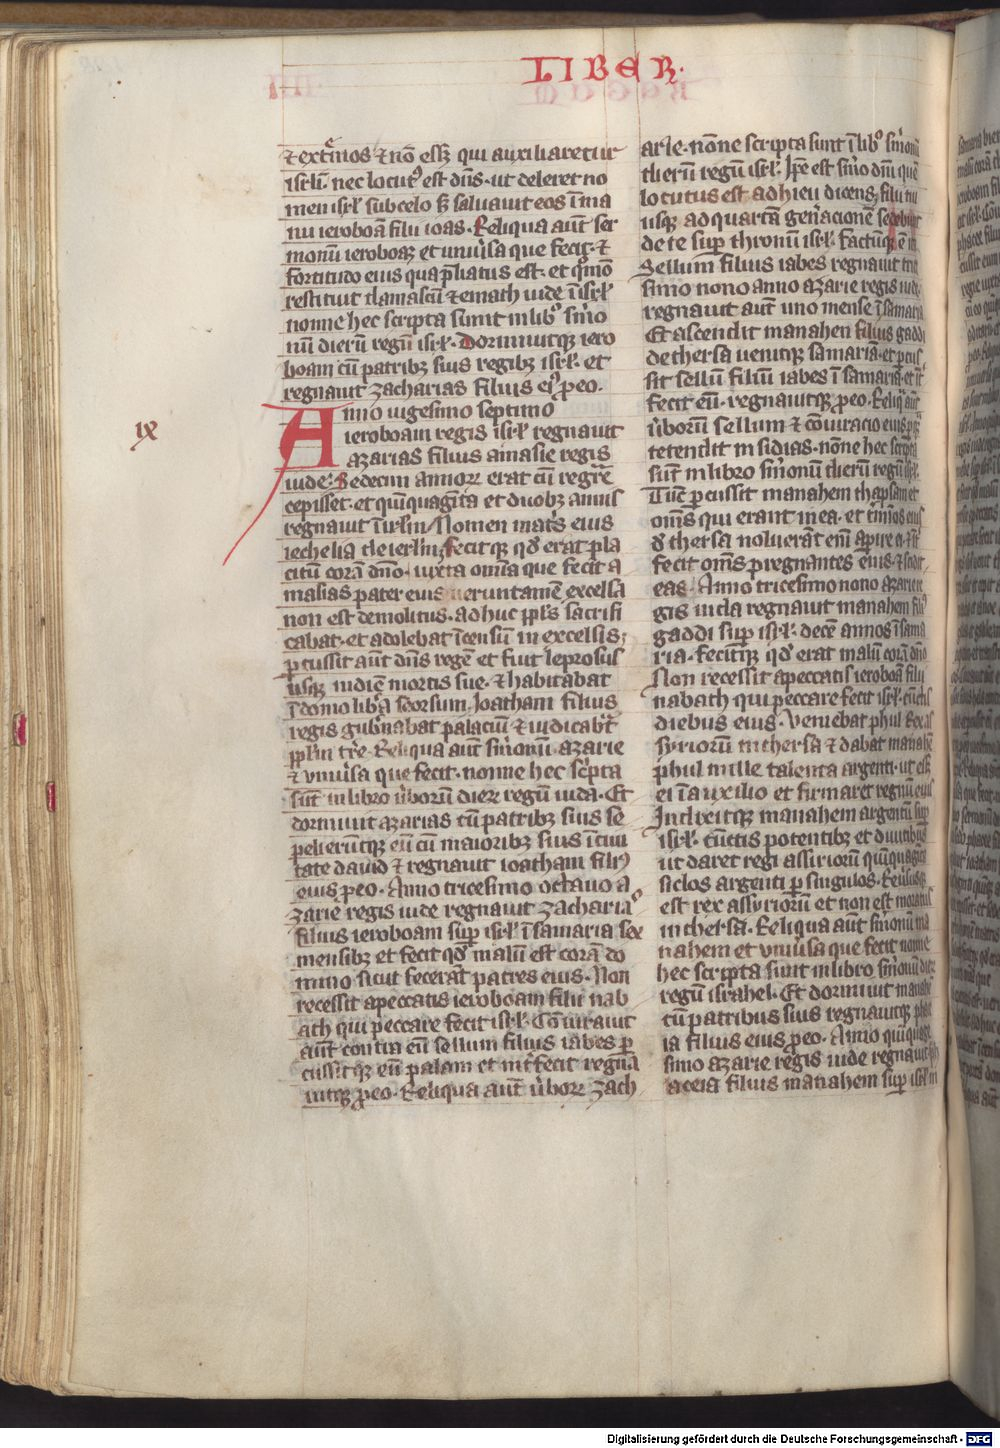 LIBER.
⁊ ext̾mos ⁊ nō eſſꝫ qui auxiliaretur
iſrl̄i. nec locut᷒ eſt dn̄s. ut deleret no
men iſrl̄ sub celo sꝫ saluauit eos ī ma
nu ieroboā filii ioas. Reliqua aūt ser
monū ieroboaꝫ et uniu̾sa que fecit. ⁊
fortitudo eius qua p̄liatus eſt. et qͦmō
reſtituit damascū ⁊ emath iude ī iſrl̄
nonne hec scripta sunt in lib᷒ ſm̄o
nū dierū regū iſrl̄. Dormiuitqꝫ iero
boam cū patribꝫ suis regibꝫ iſrl̄. et
regnauit zacharias filius ei᷒ p̄ eo.
ix
Anno uigesimo septimo
ieroboam regis iſrl̄ regnauit
azarias filius amasie regis
iude. Sedecim annoꝝ erat cū regn̄e
cepiſſet. et quīquagīta et duobꝫ annis
regnauit ī ierl̄m. Nomen mat̾s eius
iechelia de ierl̄m. fecitqꝫ qd̾ erat pla
citū corā dn̄o. iuxta omīa que fecit a
masias pater eius ueruntamē excelsa
non eſt demolitus. adhuc ppl̄s sacrifi
cabat. et adolebat īcensū in excelsis;
ꝑcuſſit aūt dn̄s regē et fuit leprosus
usqꝫ in diē mortis sue. ⁊ habitabat
ī domo lib̾a seorsum. Joatham filius
regis gub̾nabat palaciū ⁊ iudicab̾t
ppl̄m tr̄e. Reliqua aūt ſm̄onū. azarie
⁊ uniu̾sa que fecit. nonne hec sc̾pta
sūt in libro u̾borū dieꝝ regū iuda. Et
dormiuit azarias cū patribꝫ suis se
pelierūtqꝫ eū cū maioribꝫ suis ī ciui
tate dauid ⁊ regnauit ioatham fili᷒
eius p̄ eo. Anno tricesimo octauo a
zarie regis iude regnauit zacharia᷒
filius ieroboam suꝑ iſrl̄ ī samaria sex
mensibꝫ et fecit qd̾ malū eſt corā do
mino sicut fecerāt patres eius. Non
receſſit a peccatis ieroboam filii nab
ath qui peccare fecit iſrl̄. Cōiurauit
aūt contra eū sellum filius iabes ꝑ
cuſſitqꝫ eū palam et int̾fecit regna
uitqꝫ p̄ eo. Reliqua aūt u̾boꝝ zach
arie. nōne scripta sunt ī lib᷒ ſm̄onū
dierū regū iſrl̄. Ip̄e eſt ſm̄o dn̄i quē
locutus eſt ad hieu dicens filii tui
usqꝫ ad quartā gen̾acionē sedebunt
de te suꝑ thronū iſrl̄. Factūqꝫ ē ita
Sellum filius iabes regnauit trice
simo nono anno azarie regis iude
regnauit aūt uno mense ī samaria
Et ascendit manahen filius gaddi
de thersa uenitqꝫ samariā. et ꝑcus
sit sellū filiū iabes ī samaria. et īt̾
fecit eū. regnauitqꝫ p̄ eo. Reliq̾ aūt
u̾borū sellum ⁊ cōiuracio eius
tetendit insidias. nōne hec scripta
sūt in libro ſm̄onū dierū regū iſrl̄.
Tūc ꝑcuſſit manahem thapsam et
om̄s qui erant in ea. et t̾mīos eius
de thersa noluerāt enī aꝑire ei. ⁊ īt̾
fecit om̄s pregnantes eius. ⁊ scidit
eas. Anno tricesimo nono azarie re
gis iuda regnauit manahem fili᷒
gaddi suꝑ iſrl̄. decē annos ī sama
ria. fecitqꝫ qd̾ erat malū corā dn̄o
Non receſſit a peccatis ieroboā filii
nabath qui peccare fecit iſrl̄. cūctis
diebus eius. Veniebat phul rex as
syriorū in thersa ⁊ dabat manahē
phul mille talenta argenti. ut eſſꝫ
ei ī auxilio et firmaret regnū eius
Indixitqꝫ manahem argentū suꝑ
iſrl̄. cūctis potentibꝫ et diuitibus
ut daret regi aſſiriorū quīquagīta
siclos argenti ꝑ singulos. Reuersusqꝫ
eſt rex aſſyriorū et non eſt moratus
in thersa. Reliqua aūt ſm̄onū ma
nahem et uniu̾sa que fecit nonne
hec scripta sunt in libro ſm̄onū dieꝝ
regū israhel. Et dormiuit manahē
cū patribus suis regnauitqꝫ phace
ia filius eius p̄ eo. Anno quīquage
simo azarie regis iude regnauit ph
aceia filius manahem suꝑ iſrl̄ in
Digitalisierung gefördert durch die Deutsche Forschungsgemeinschaft - DFG